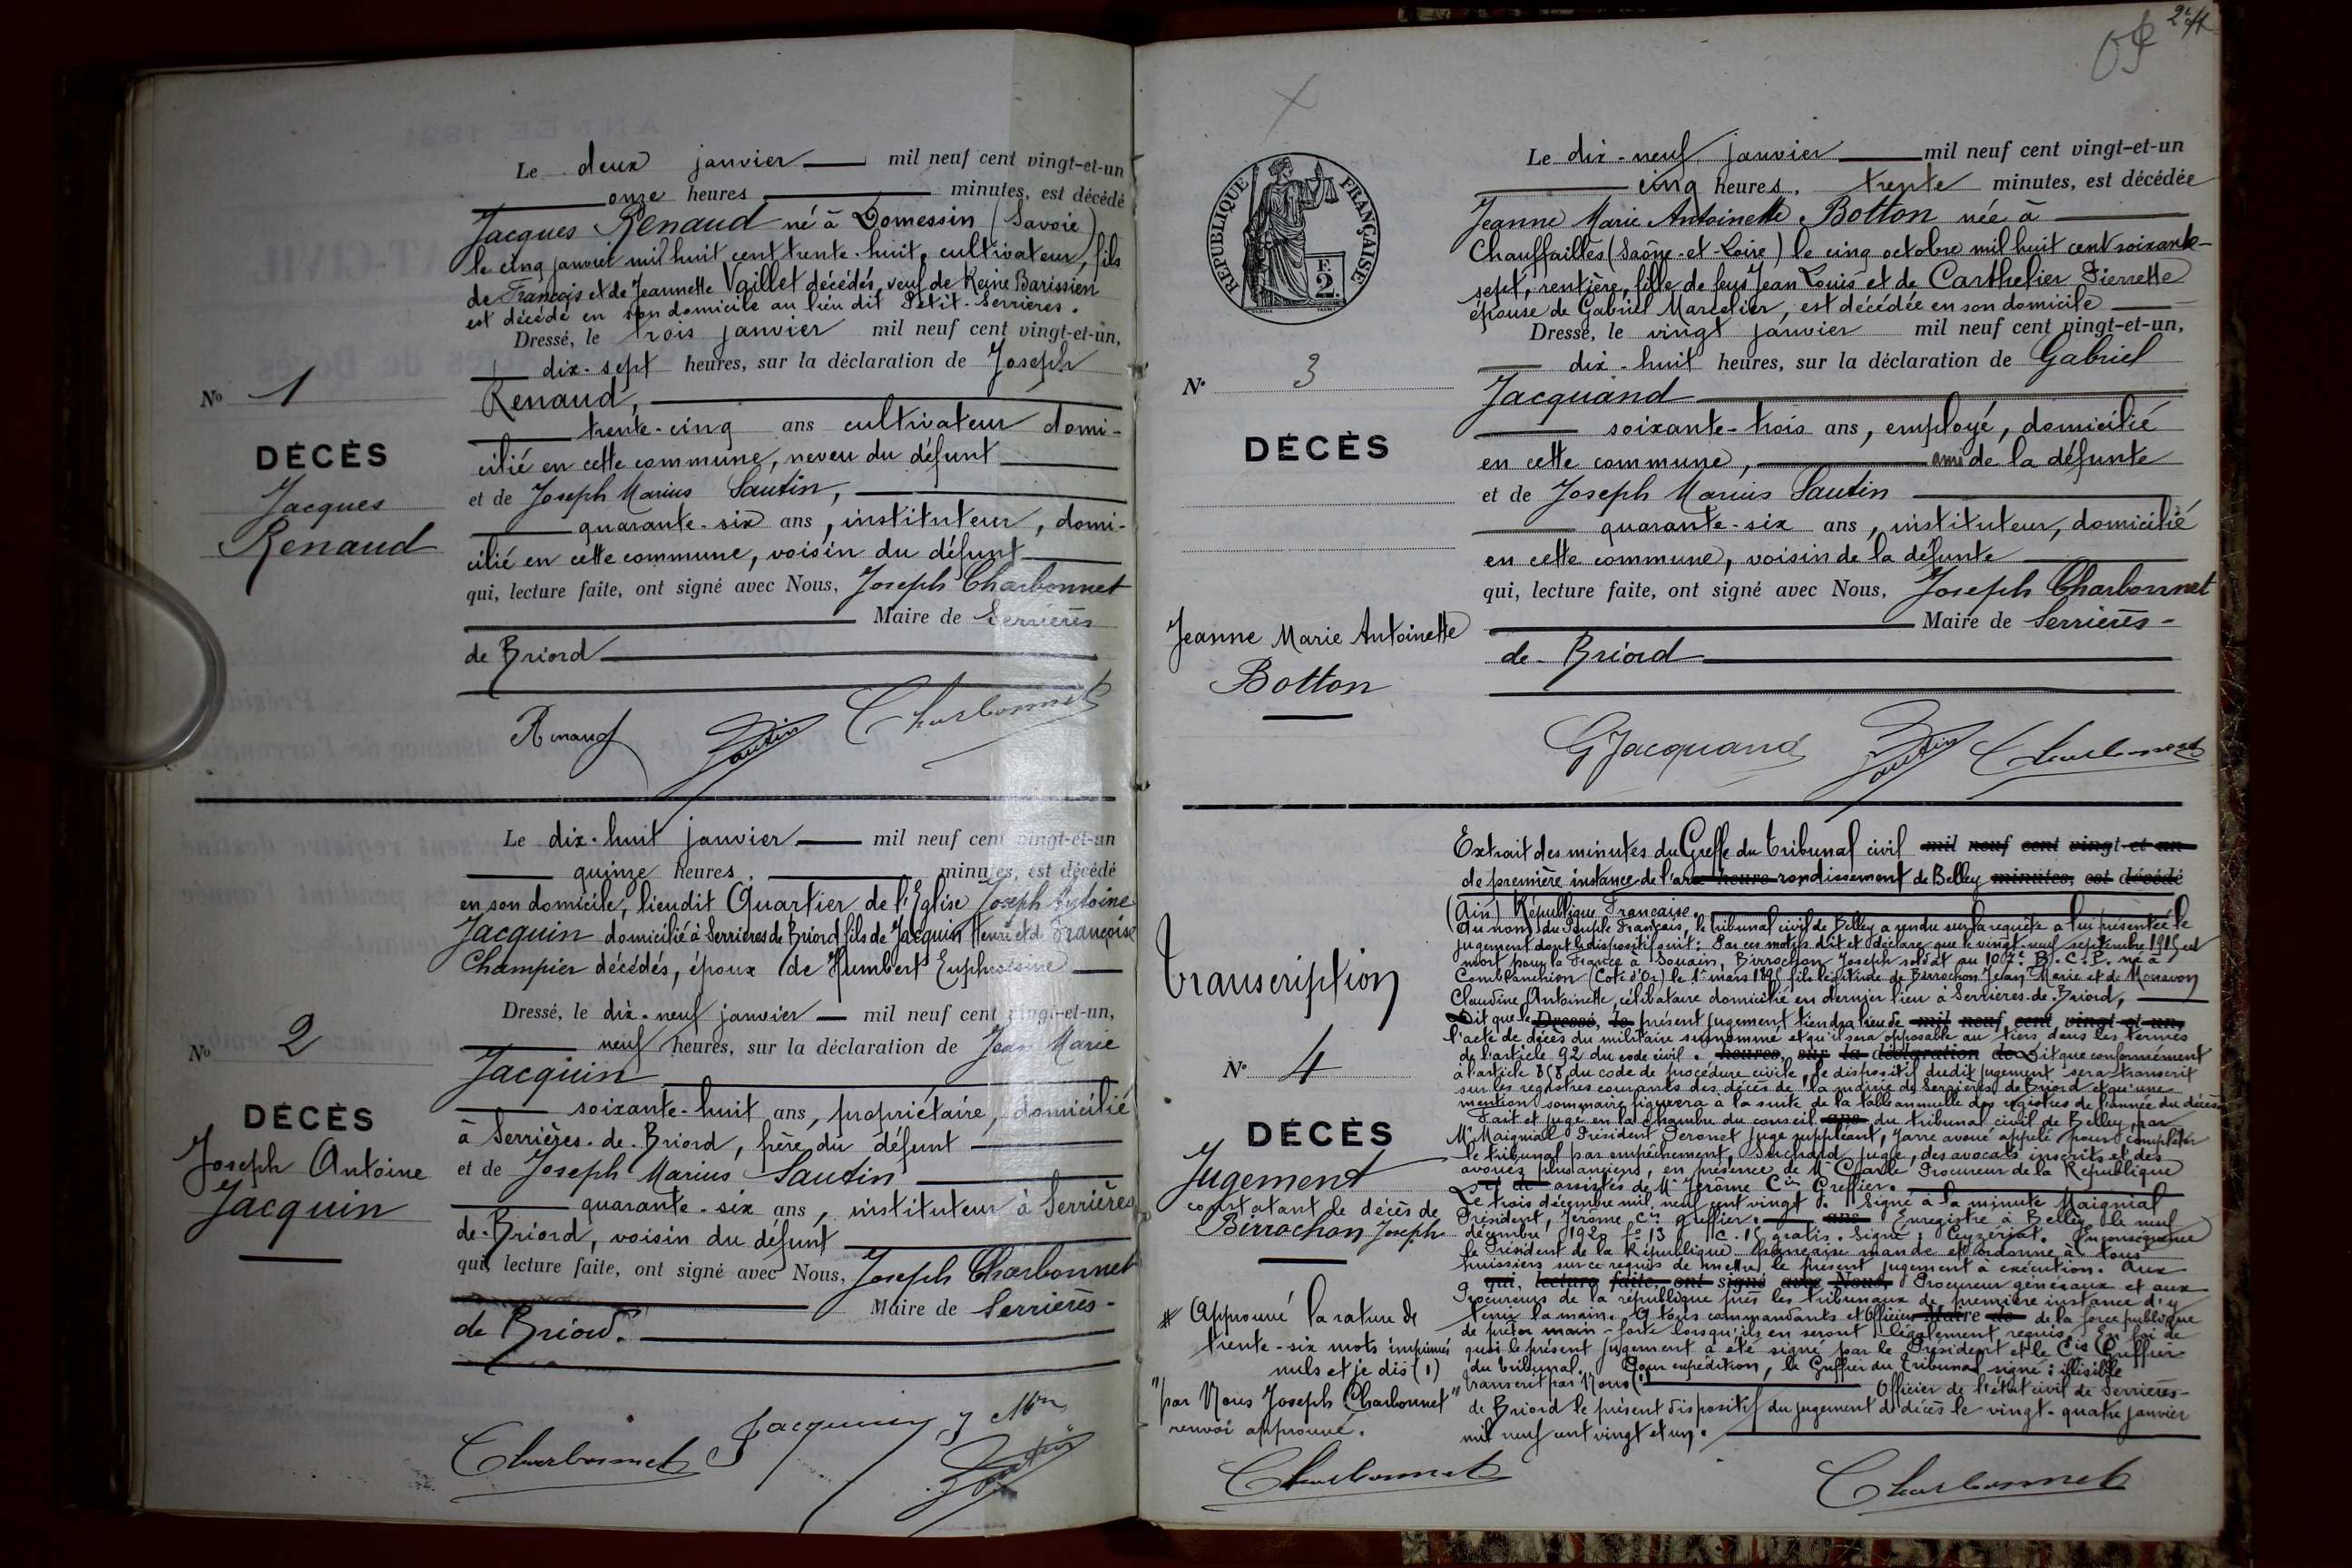 Le deux janvier mil neuf cent vingt-et-un
onze heures minutes, est décédé
Jacques Renaud né à Domessin (Savoie)
le cinq janvier mil huit cent trente-huit, cultivateur, fils
de François et de Jeannette Vaillet décédés, veuf de Reine Barissien
est décédé en son domicile au lieu dit Petit-Serrières.
Dressé, le trois janvier mil neuf cent vingt-et-un,
dix-sept heures, sur la déclaration de Joseph
Renaud,
trente-cinq ans cultivateur domi-
cilié en cette commune, neveu du défunt
et de Joseph Marius Sautin,
quarante-six ans, instituteur, domi-
cilié en cette commune, voisin du défunt
qui, lecture faite, ont signé avec Nous, Joseph Charbonnet
Maire de Serrières
de Briord
Renaud Sautin Charbonnet
No 1
DÉCÈS
Jacques
Renaud
Le dix-huit janvier mil neuf cent vingt-et-un
quinze heures, minutes, est décédé
en son domicile, lieudit Quartier de l'Eglise Joseph Antoine
Jacquin domicilié à Serrières de Briord fils de Jacquin Henri et de Françoise
Champier décédés, époux de Humbert Euphroisine
Dressé, le dix-neuf janvier mil neuf cent vingt-et-un,
neuf heures, sur la déclaration de Jean Marie
Jacquin
soixante-huit ans, propriétaire, domicilié
à Serrières-de-Briord, frère du défunt
et de Joseph Marius Sautin
quarante-six ans, instituteur à Serrières
de-Briord, voisin du défunt
qui, lecture faite, ont signé avec Nous, Joseph Charbonnet
Maire de Serrières-
de Briord.
Charbonnet Jacquin J Mie Sautin
No 2
DÉCÈS
Joseph Antoine
Jacquin
2e
Le dix-neuf janvier mil neuf cent vingt-et-un
cinq heures, trente minutes, est décédée
Jeanne Marie Antoinette Botton née à
Chauffailles (Saône-et-Loire) le cinq octobre mil huit cent soixante-
sept, rentière, fille de feus Jean Louis et de Carthelier Pierrette
épouse de Gabriel Marcelier, est décédée en son domicile
Dressé, le vingt janvier mil neuf cent vingt-et-un,
dix-huit heures, sur la déclaration de Gabriel
Jacquand
soixante-trois ans, employé, domicilié
en cette commune, ami de la défunte
et de Joseph Marius Sautin
quarante-six ans, instituteur, domicilié
en cette commune, voisin de la défunte
qui, lecture faite, ont signé avec Nous, Joseph Charbonnet
Maire de Serrières-
de-Briord
GJacquand Sautin Charbonnet
REPUBLIQUE FRANÇAISE
F.
2.
No 3
DÉCÈS
Jeanne Marie Antoinette
Botton
Extrait des minutes du Greffe du tribunal civil mil neuf cent vingt-et-un
de première instance de l'ar heure rondissement de Belley minutes, est décédé
(Ain) République Française.
Au nom du Peuple Français, le tribunal civil de Belley a rendu sur la requête a lui présentée le
jugement dont le dispositif suit: Par ces motifs dit et déclare que le vingt-neuf septembre 1915 est
mort pour la France à Souain, Birrochon Joseph soldat au 107e B.C.P. né à
Comblanchien (Cote d'Or) le 1er mars 1895 fils légitime de Birrochon Jean Marie et de Monavon
Claudine Antoinette, célibataire domicilié en dernier lieu à Serrières-de-Briord,
Dit que le Dressé, le présent jugement tiendra lieu de mil neuf cent vingt-et-un,
l'acte de décès du militaire susnommé et qu'il sera opposable au tiers dans les termes
de l'article 92 du code civil. heures, sur la déclaration de Dit que conformément
à l'article 858 du code de procédure civile, le dispositif dudit jugement sera transcrit
sur les registres courants des décès de la mairie de Serrières de Briord et qu'une
mention sommaire figurera à la suite de la table annuelle des registres de l'année du décès
Fait et jugé en la chambre du conseil ans du tribunal civil de Belley par
Mr Maignial Président Peronet juge suppléant, Jarre avoué appelé pour compléter
le tribunal par empêchement, juge, des avocats inscrits et des
avoués plus anciens, en présence de Mr Procureur de la République
et de assistés de Mr Jerôme Cis Greffier.
Le trois décembre mil neuf cent vingt. Signé à la minute Maignial
Président, Jerome Cis greffier. ans Enregistré à Belley le neuf
décembre 1920 fo 13 C. 16 gratis. Signé: Ceyzériat. En conséquence
le Président de la République Française mande et ordonne à tous
huissiers sur ce requis de mettre le présent jugement à exécution. Aux
qui, lecture faite, ont signé avec Nous, Procureurs généraux et aux
Procureurs de la république près les tribunaux de première instance d'y
tenir la main. A tous commandants et Officiers Maire de de la force publique
de prêter main-forte lorsqu'ils en seront légalement requis. En foi de
quoi le présent jugement a été signé par le Président et le Cis Greffier
du tribunal. Pour expédition, le Greffier du Tribunal signé: illisible
transcrit par Nous (1) Officier de l'état civil de Serrières-
de Briord le présent dispositif du jugement de décès le vingt-quatre janvier
mil neuf cent vingt et un.
Charbonnet
transcription
No 4
DÉCÈS
Jugement
constatant le décès de
Birrochon Joseph
# Approuvé la rature de
trente-six mots imprimés
nuls et je dis (1)
"par Nous Joseph Charbonnet"
renvoi approuvé.
Charbonnet